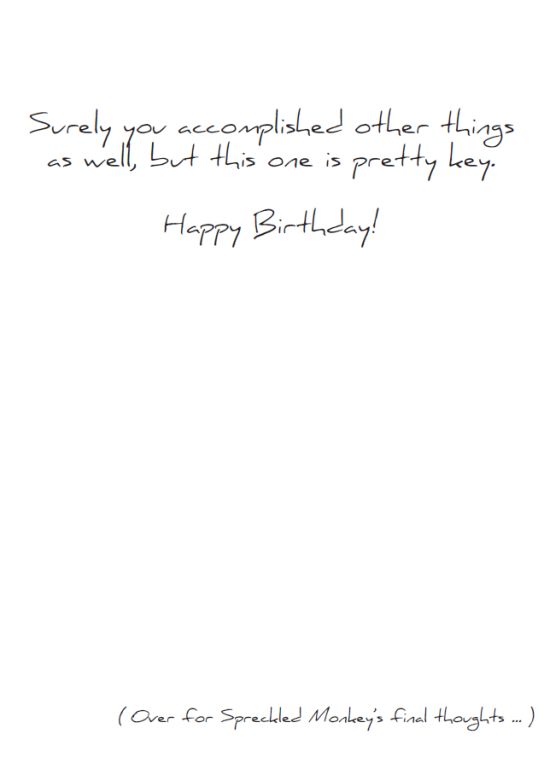 Surely you accomplished other things
as well, but this one is pretty key.
Happy Birthday!
( Over for Spreckled Monkey's final thoughts ... )